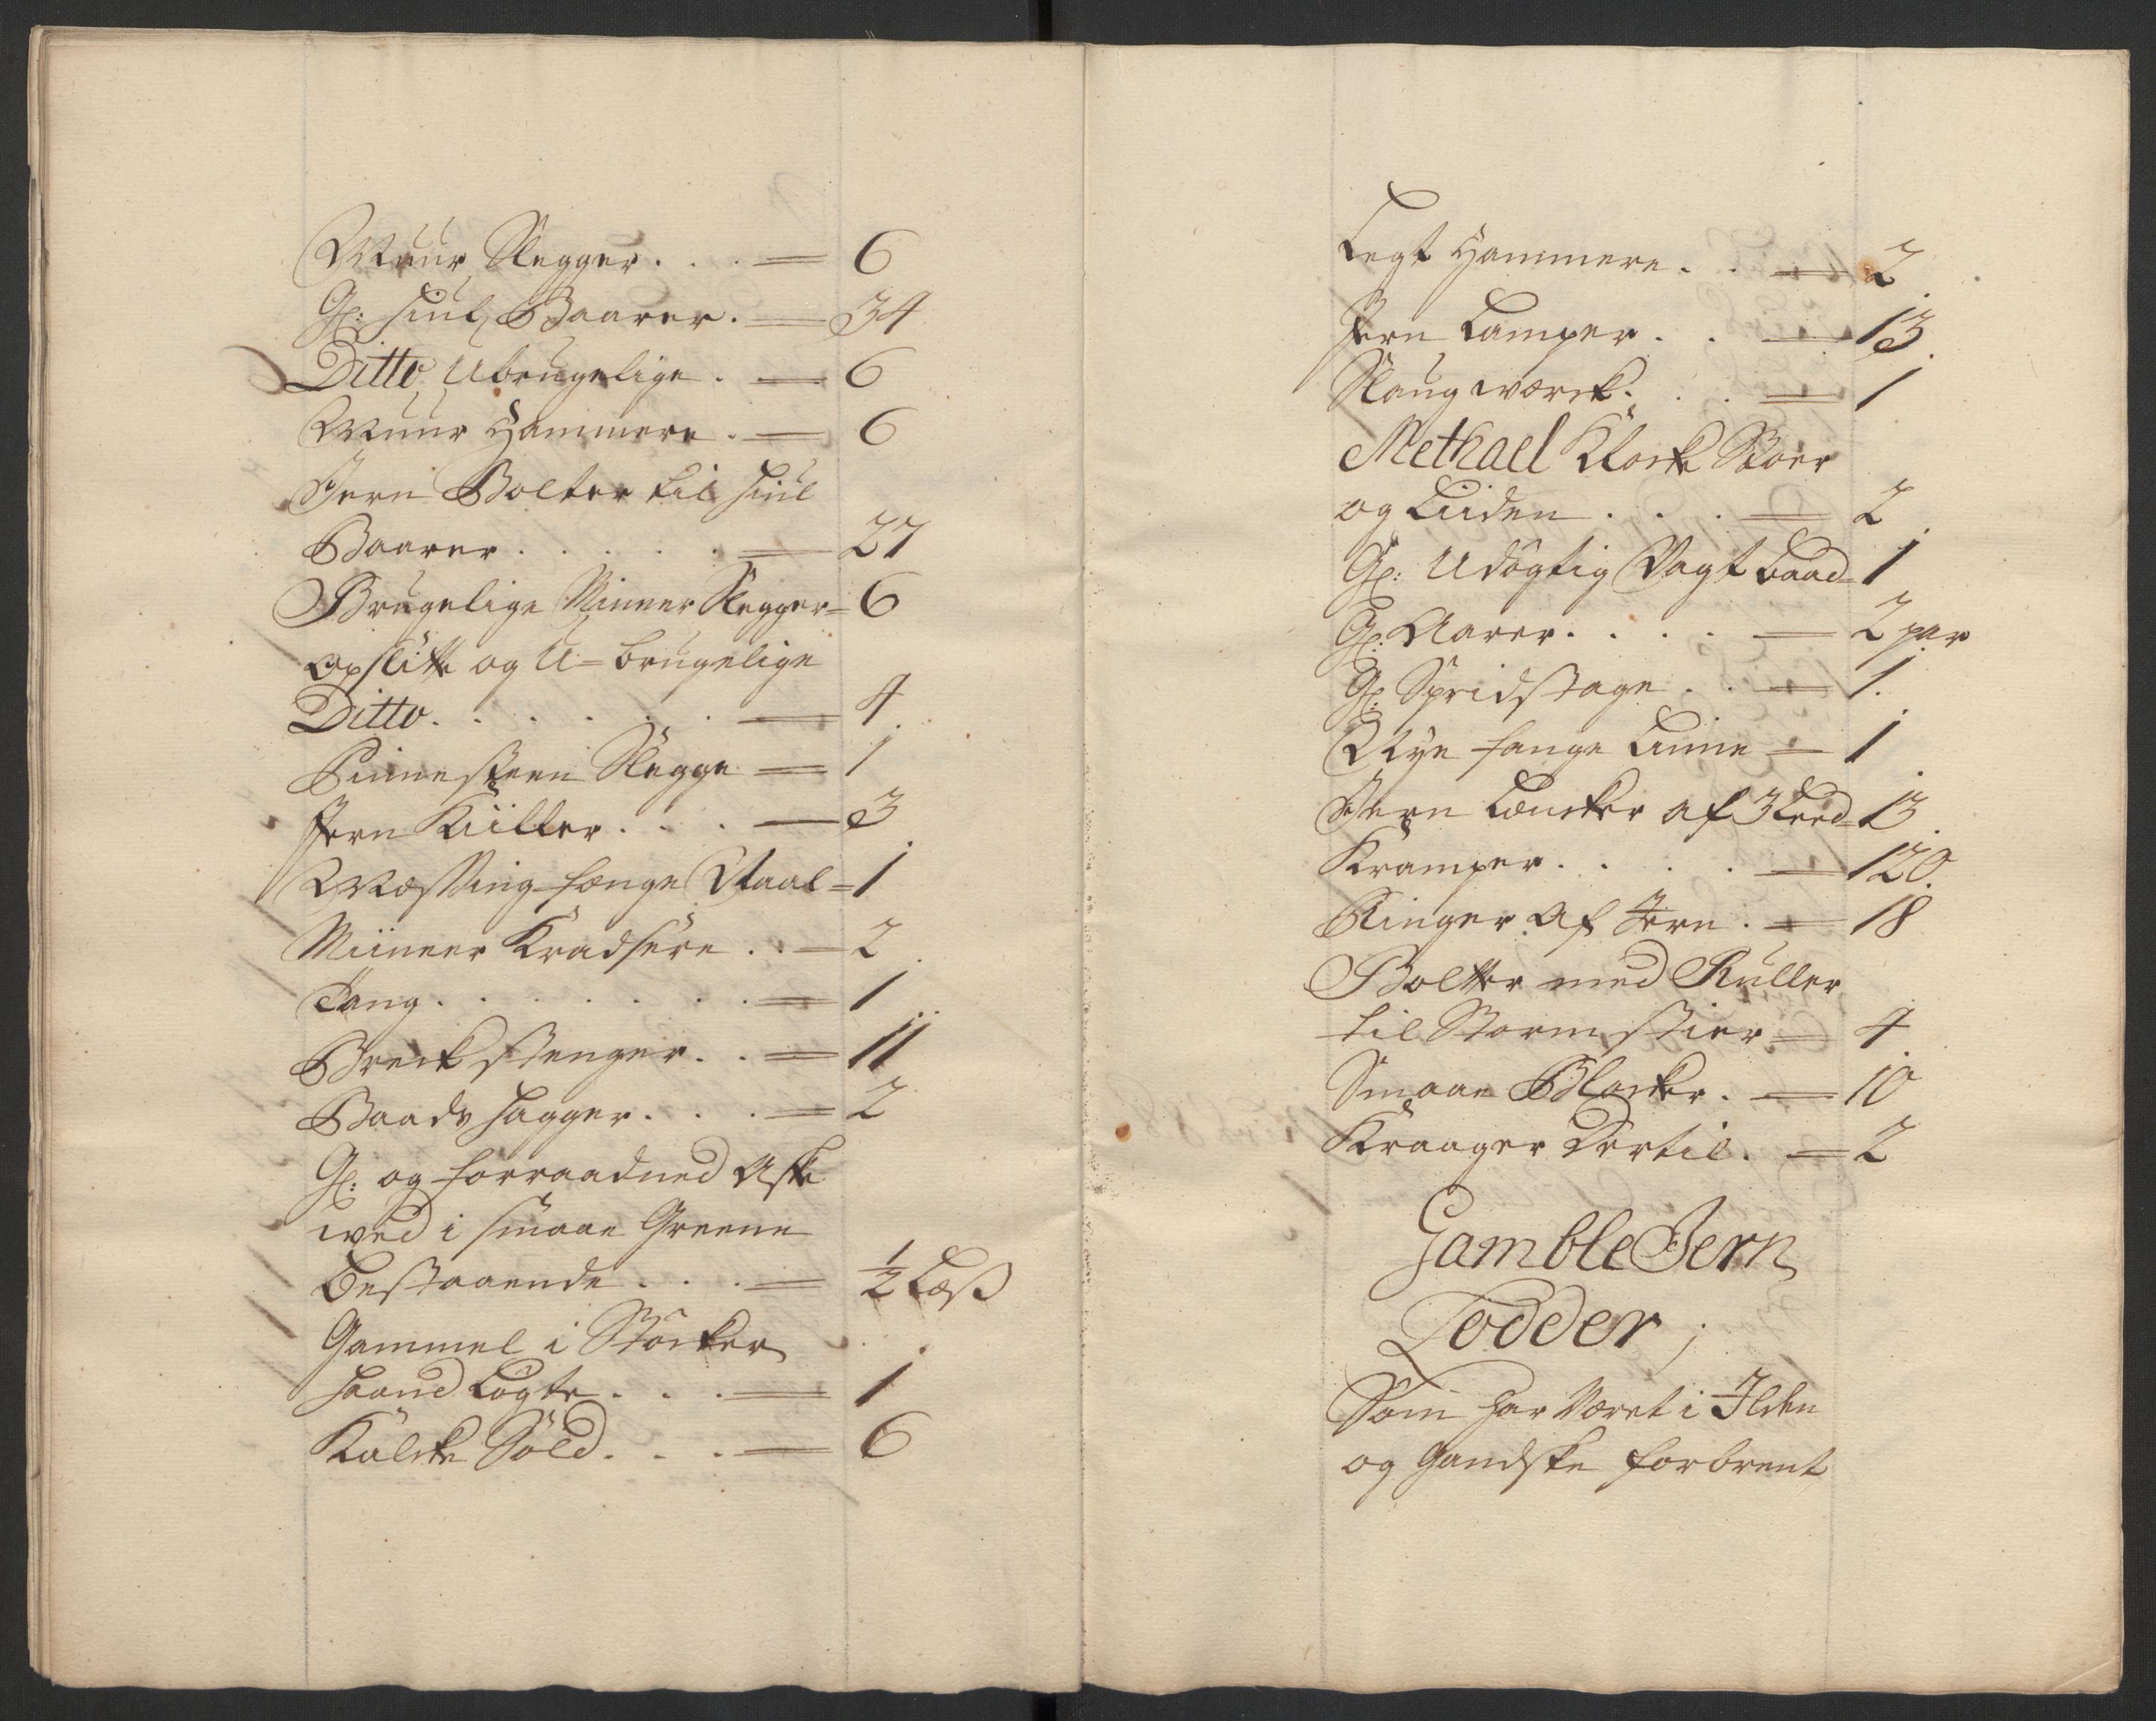 Muur Slegger . . . = 6
Gl: Hiul Baarer . = 34
Ditto Ubrugelige . = 6
Muur Hammere . = 6
Jern Bolter til Hiul
Baarer . . . . . = 27
Brugelige Minner Slegger = 6
Opslitte og U=brugelige
Ditto . . . . . . = 4
Pinnesteen Slegge = 1
Jern Kiiller . . . = 3
Messing henge Staal = 1
Miinner Kradsere . . = 2
Tang . . . . . . . = 1
Breckstenger . . = 11
Baads Hagger . . . = 2
Gl: og forraadned Aske
ved i smaae Greene
bestaaende . . . = ½ Læs
Gammel i Støcker
Haand Løgte . . . = 1
Kalcke Sold . . . = 6
Legt Hammere . . = 2
Jern Lamper . . = 13
Slaugværck . . . = 1
Methael Klocke Stoer
og Liiden . . . = 2
Gl: Udøgtig Vagt baad = 1
Gl: Aarer . . . . = 2 par
Gl: Spridstage . . = 1
Nye fange Linne = 1
Jern Lencker af 3 Leed = 13
Kramper . . . . = 120
Ringer af Jern . = 18
Boltter med Ruller
til Stormstier = 4
Smaae Blocker . = 10
Kraager dertil . = 2
Gamble Jern
Lodder;
Som har været i Ilden
og gandske forbrent